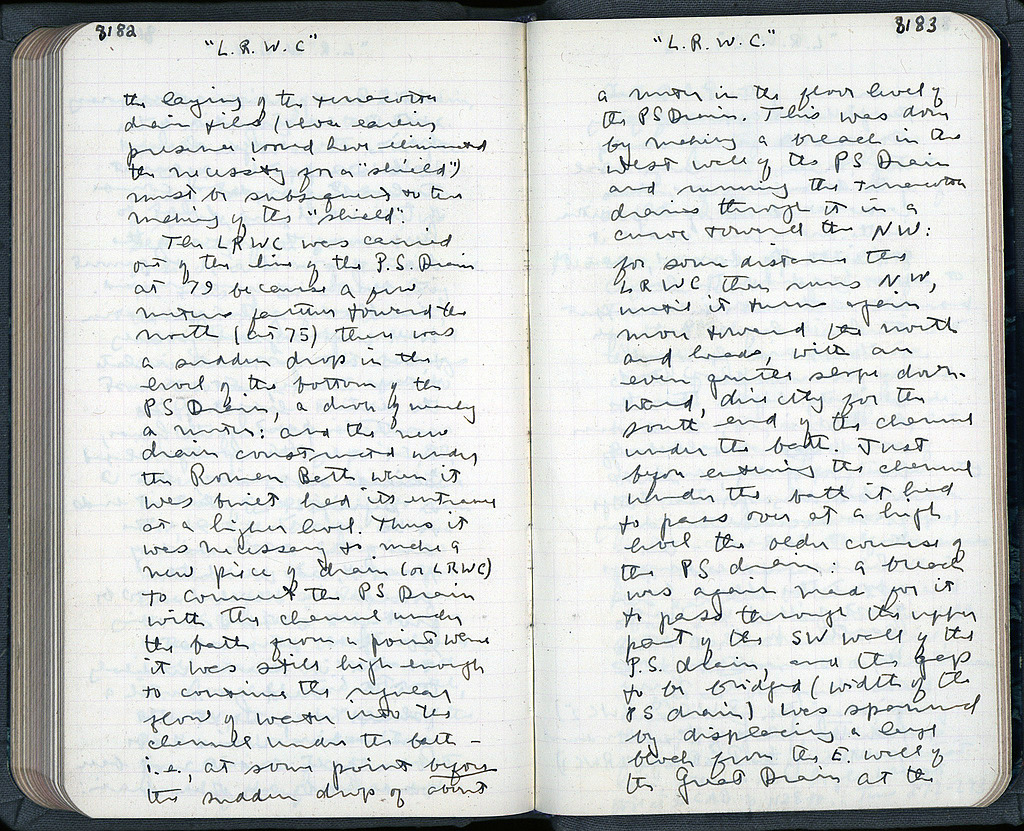 8182
"L. R. W. C"
the laying of the terracotta
drain tiles (whose earlier
presence would have eliminated
the necessity for a "shield")
must be subsequent to the
making of the "shield".
The LRWC was carried
out of the line of the P.S. Drain
at 79 because a few
metres farther toward the
north (at 75) there was
a sudden drop in the
level of the bottom of the
PS Drain, a drop of nearly
a metre: and the new
drain constructed under
the Roman Bath when it
was built had its entrance
at a higher level. Thus it
was necessary to make a
new piece of drain (or LRWC)
to connect the PS Drain
with the channel under
the bath from point where
it was still high enough
to continue the regular
flow of water into the
channel under the bath –
i.e., at some point before
the sudden drop of about
8183
"L. R. W. C."
a meter in the floor level of
the PS Drain. This was done
by making a breach in the
West wall of the PS Drain
and running the terracotta
drains through it in a
curve toward the NW:
for some distance the
LRWC then runs N.W,
until it turns again
more toward the north
and leads, with an
even gentler slope down-
ward, directly for the
south end of the channel
under the bath. Just
before entering the channel
under the bath it had
to pass over at a high
level the older course of
the PS drain: a breach
was again made for it
to pass through the upper
part of the SW wall of the
P.S. drain, and the gap
to be bridged (width of the
PS drain) was spanned
by displacing a large
block from the E. wall of
the Great Drain at the